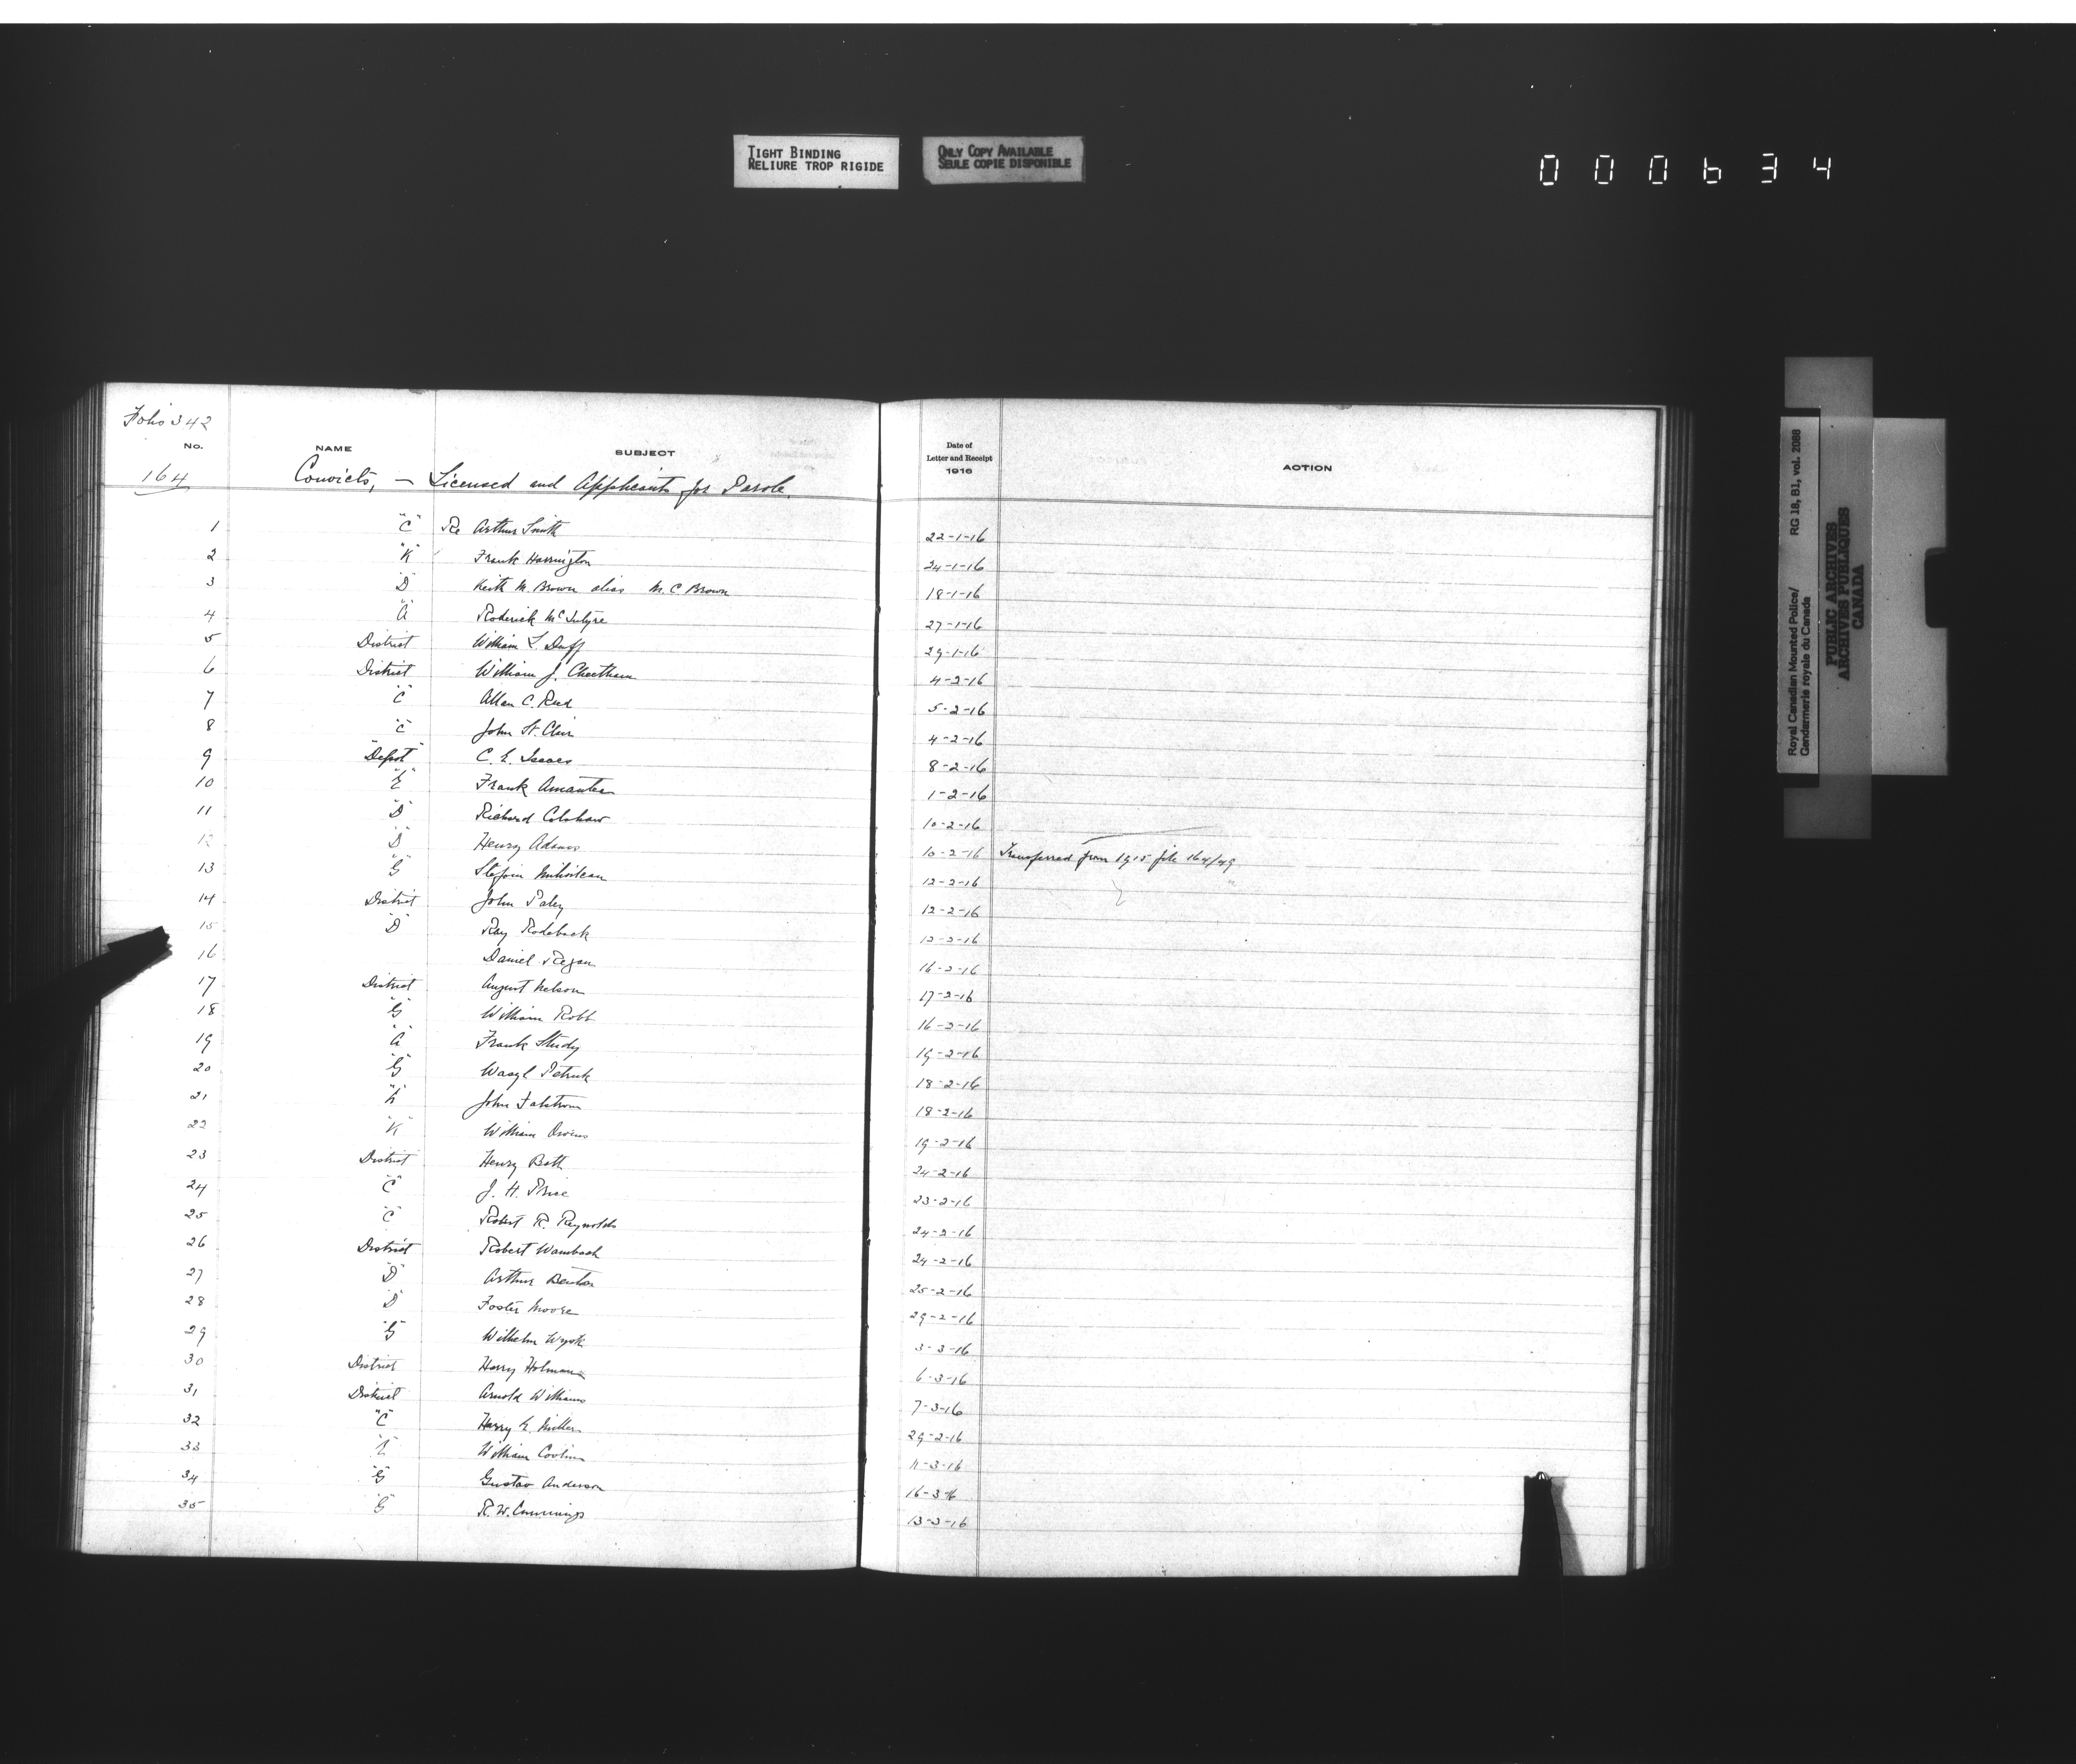 TIGHT BINDING
RELIURE TROP RIGIDE
ONLY COPY AVAILABLE
SEULE COPIE DISPONIBLE
000634
Folio 342
No. NAME SUBJECT Date of Letter and Receipt 1916 ACTION
164 Convicts, — Licensed and Applicants for Parole.
1 "C" Re Arthur Smith 22-1-16
2 "K" Frank Harrington 24-1-16
3 "D" Keith M. Brown alias M. C Brown 18-1-16
4 "A" Roderick McIntyre 27-1-16
5 District William L Duff 29-1-16
6 District William J. Cheetham 4-2-16
7 "C" Allan C. Reed 5-2-16
8 "C" John St. Clair 4-2-16
9 "Depot" C. E. Isaacs 8-2-16
10 "E" Frank Amantea 1-2-16
11 "D" Richard Colshaw 10-2-16
12 "D" Henry Adams 10-2-16 Transferred from 1915 file 164/49
13 "G" 12-2-16
14 District John Paley 12-2-16
15 "D" Ray Rodeback 12-2-16
16 Daniel Regan 16-2-16
17 District August Nelson 17-2-16
18 "G" William Robb 16-2-16
19 "A" Frank Study 19-2-16
20 "G" Wasyl Petruk 18-2-16
21 "K" John Falstrom 18-2-16
22 "K" William Owens 19-2-16
23 District Henry Bath 24-2-16
24 "C" J. H. Price 23-2-16
25 "C" Robert R. Reynolds 24-2-16
26 District Robert Wambach 24-2-16
27 "D" Arthur Benton 25-2-16
28 "D" Foster Moore 29-2-16
29 "G" Wilhelm 3-3-16
30 District Harry Holman 6-3-16
31 District Arnold Williams 7-3-16
32 "C" Harry E. Miller 29-2-16
33 "E" William 11-3-16
34 "G" Gustav Anderson 16-3-16
35 "G" R. W. Cummings 13-3-16
Royal Canadian Mounted Police/
Gendarmerie royale du Canada
RG 18, B1, vol. 2088
PUBLIC ARCHIVES
ARCHIVES PUBLIQUES
CANADA